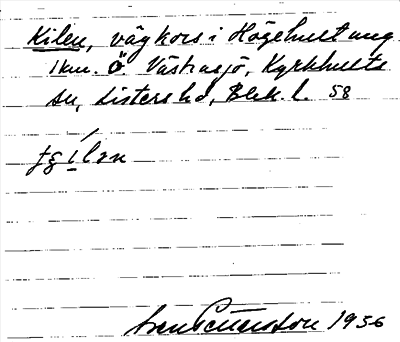 Kilen, vägkors i Högehult ung
1 km. Ö. Västrasjö, Kyrkhults
sn, Listers hd, Blek. l. 58
Sven Petersson 1956